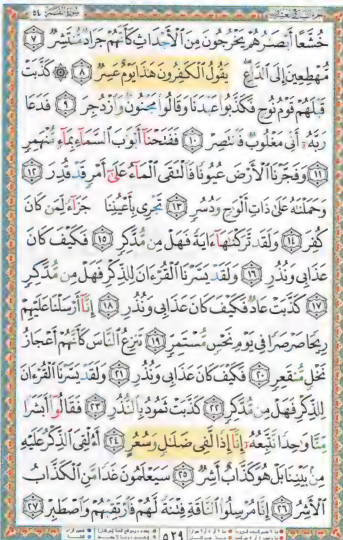 سورة القمر ٥٤
خُشَّعًا أَبْصَٰرُهُمْ يَخْرُجُونَ مِنَ ٱلْأَجْدَاثِ كَأَنَّهُمْ جَرَادٌ مُّنتَشِرٌ ۝٧
مُّهْطِعِينَ إِلَى ٱلدَّاعِ يَقُولُ ٱلْكَٰفِرُونَ هَٰذَا يَوْمٌ عَسِرٌ ۝٨ ۞ كَذَّبَتْ
قَبْلَهُمْ قَوْمُ نُوحٍ فَكَذَّبُوا۟ عَبْدَنَا وَقَالُوا۟ مَجْنُونٌ وَٱزْدُجِرَ ۝٩ فَدَعَا
رَبَّهُۥٓ أَنِّى مَغْلُوبٌ فَٱنتَصِرْ ۝١٠ فَفَتَحْنَآ أَبْوَٰبَ ٱلسَّمَآءِ بِمَآءٍ مُّنْهَمِرٍ
۝١١ وَفَجَّرْنَا ٱلْأَرْضَ عُيُونًا فَٱلْتَقَى ٱلْمَآءُ عَلَىٰٓ أَمْرٍ قَدْ قُدِرَ ۝١٢
وَحَمَلْنَٰهُ عَلَىٰ ذَاتِ أَلْوَٰحٍ وَدُسُرٍ ۝١٣ تَجْرِى بِأَعْيُنِنَا جَزَآءً لِّمَن كَانَ
كُفِرَ ۝١٤ وَلَقَد تَّرَكْنَٰهَآ ءَايَةً فَهَلْ مِن مُّدَّكِرٍ ۝١٥ فَكَيْفَ كَانَ
عَذَابِى وَنُذُرِ ۝١٦ وَلَقَدْ يَسَّرْنَا ٱلْقُرْءَانَ لِلذِّكْرِ فَهَلْ مِن مُّدَّكِرٍ
۝١٧ كَذَّبَتْ عَادٌ فَكَيْفَ كَانَ عَذَابِى وَنُذُرِ ۝١٨ إِنَّآ أَرْسَلْنَا عَلَيْهِمْ
رِيحًا صَرْصَرًا فِى يَوْمِ نَحْسٍ مُّسْتَمِرٍّ ۝١٩ تَنزِعُ ٱلنَّاسَ كَأَنَّهُمْ أَعْجَازُ
نَخْلٍ مُّنقَعِرٍ ۝٢٠ فَكَيْفَ كَانَ عَذَابِى وَنُذُرِ ۝٢١ وَلَقَدْ يَسَّرْنَا ٱلْقُرْءَانَ
لِلذِّكْرِ فَهَلْ مِن مُّدَّكِرٍ ۝٢٢ كَذَّبَتْ ثَمُودُ بِٱلنُّذُرِ ۝٢٣ فَقَالُوٓا۟ أَبَشَرًا
مِّنَّا وَٰحِدًا نَّتَّبِعُهُۥٓ إِنَّآ إِذًا لَّفِى ضَلَٰلٍ وَسُعُرٍ ۝٢٤ أَءُلْقِىَ ٱلذِّكْرُ عَلَيْهِ
مِنۢ بَيْنِنَا بَلْ هُوَ كَذَّابٌ أَشِرٌ ۝٢٥ سَيَعْلَمُونَ غَدًا مَّنِ ٱلْكَذَّابُ
ٱلْأَشِرُ ۝٢٦ إِنَّا مُرْسِلُوا۟ ٱلنَّاقَةِ فِتْنَةً لَّهُمْ فَٱرْتَقِبْهُمْ وَٱصْطَبِرْ ۝٢٧
٥٢٩